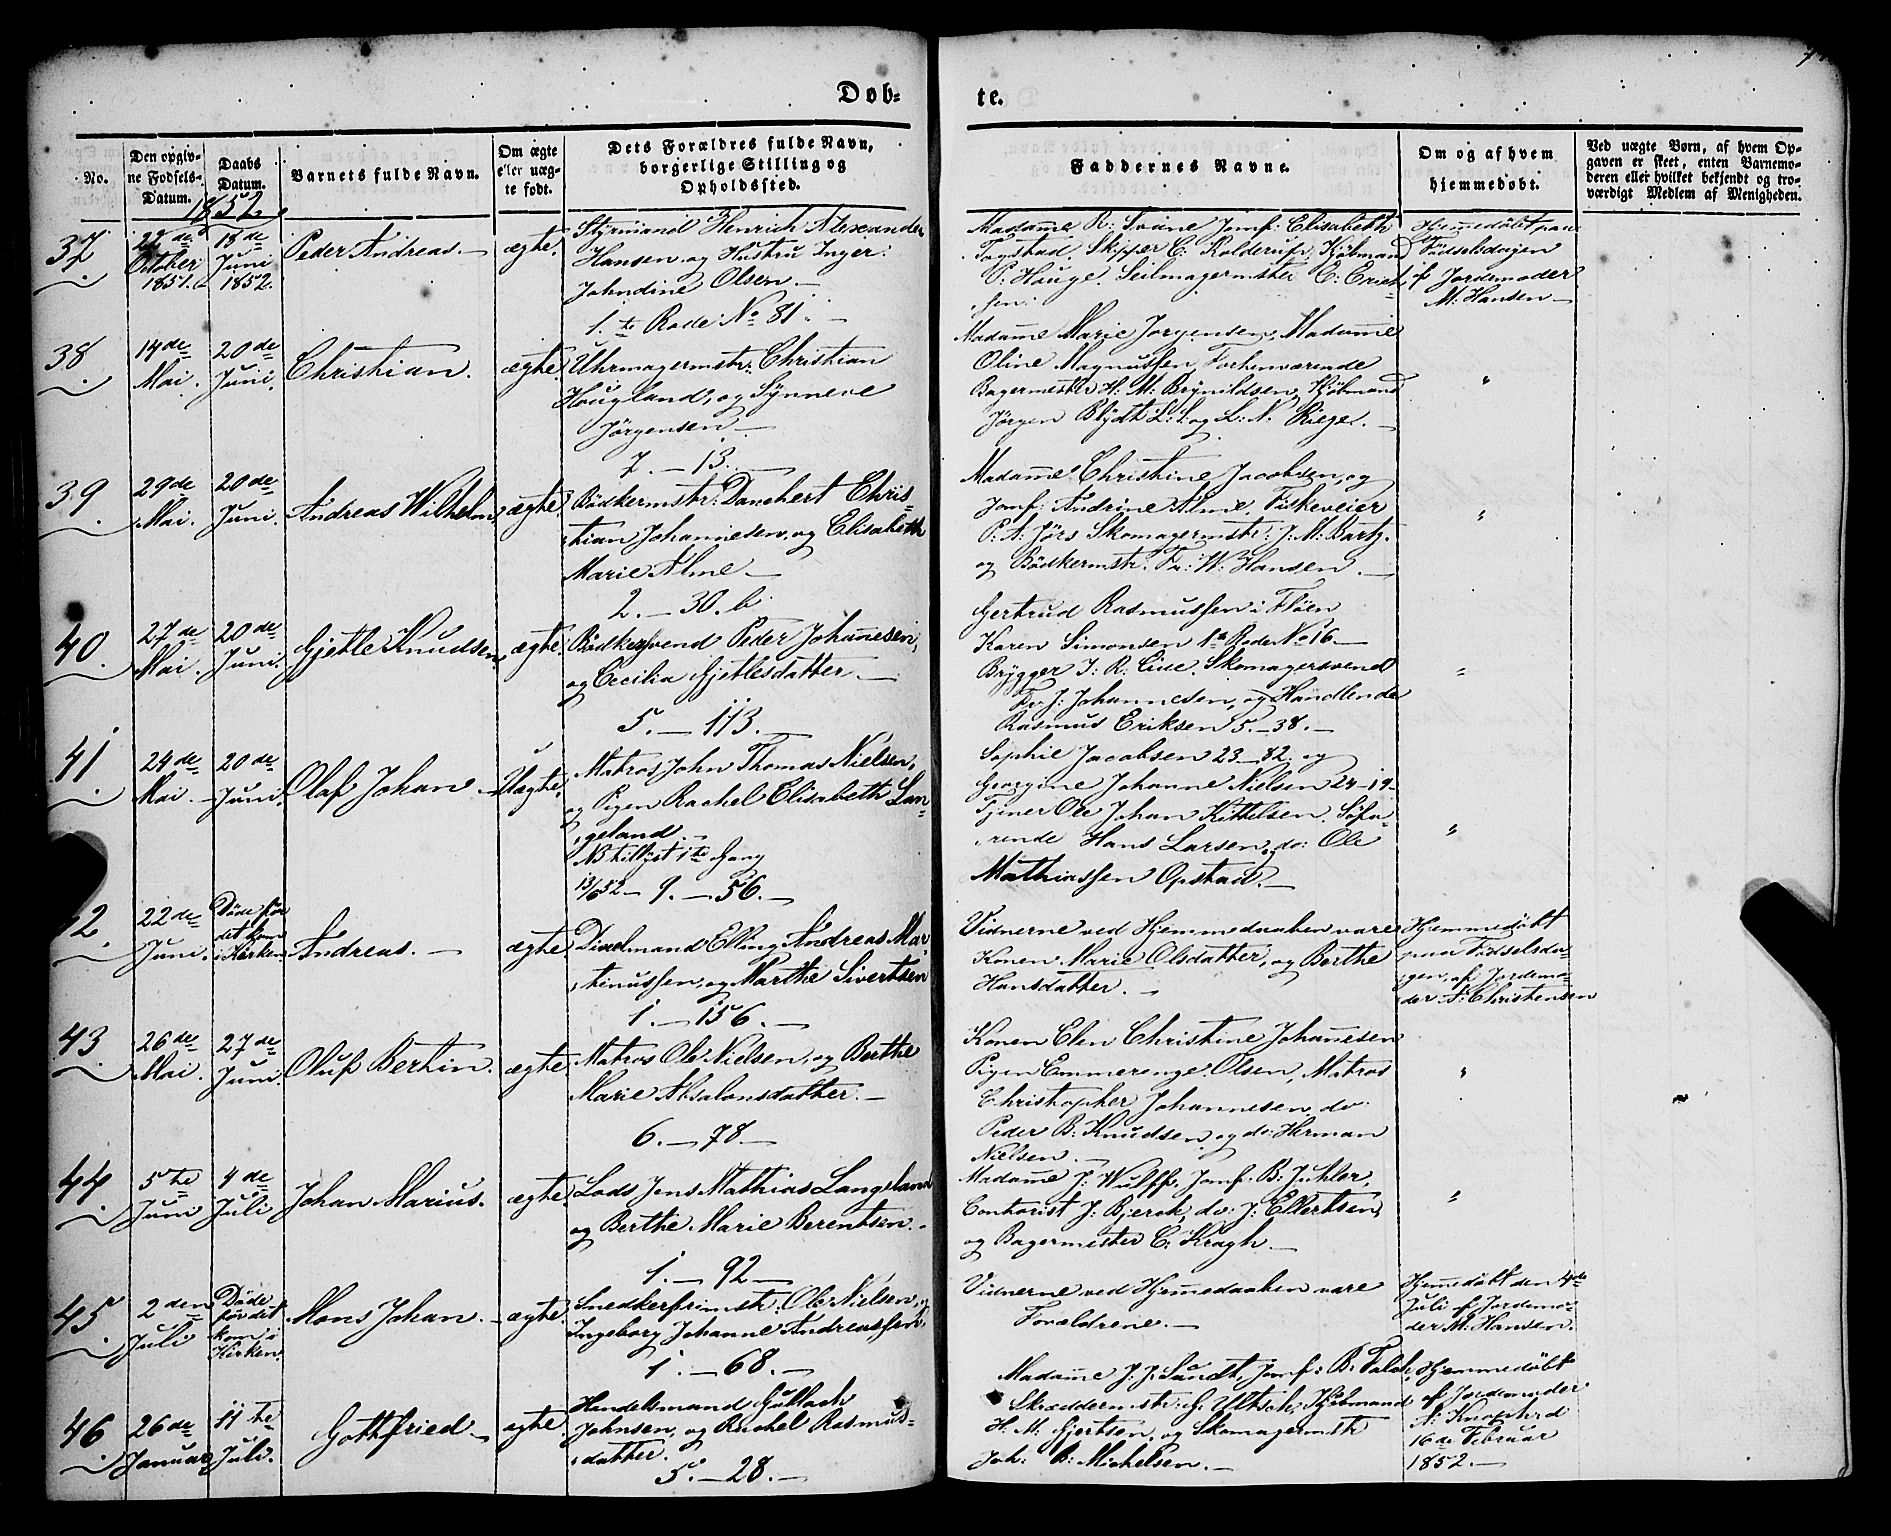 Døb-
te.
No.
Den opgiv-
ne Fødsels-
Datum.
Daabs
Datum.
Barnets fulde Navn.
Om ægte
eller uæg-
te født.
Dets Forældres fulde Navn,
borgerlige Stilling og
Opholdssted.
Faddernes Navne.
Om og af hvem
hjemmedøbt.
Ved uægte Børn, af hvem Op-
gaven er skeet, enten Barnemo-
deren eller hvilket bekjendt og tro-
værdigt Medlem af Menigheden.
1852.
37
22de
October
1851.
13de
Juni
1852.
Peder Andreas.
ægte.
Styrmand Henrich Alexander
Hansen og Hustru Inger
Johndine Olsen
1.te Rode No 81.
Madame R: Svane Jomf: Elisabeth
Fogstad. Skipper C. Rolderup, Kjøbmand
P: Houge. Seilmagermster C: Erich-
sen.
Hjemmedøbt paa
Fødselsdagen
af Jordemoder
M: Hansen
38
14de
Mai.
20de
Juni.
Christian.
ægte.
Uhrmagermstr: Christian
Hougland, og Synneve
Jørgensen
7. – 13.
Madame Marie Jørgensen, Madame
Oline Magnussen, Forhenværende
Bagermester H: M: Brynildsen, Kjøbmand
Jørgen Blydt L: S: og L: N: Riege.
"
39
29de
Mai.
20de
Juni.
Andreas Wilhelm.
ægte.
Bødkermstr: Danchert Chris-
tian Johannesen, og Elisabeth
Marie Alme
2. – 30. b.
Madame Christine Jacobsen, og
Jomf: Andrine Alme. Fiskeveier
P: A: Jørs Skomagermstr: J: M: Bartz.
og Bødkermstr. Fr: W: Hansen.
"
40
27de
Mai.
20de
Juni.
Gjetle Knudsen
ægte.
Bødkersvend Peder Johannesen,
og Cecilia Gjetlesdatter.
5. – 113.
Gertrud Rasmussen i Fløen
Karen Simonsen 1te Rode No 16.
Brygger J. R: Lien. Skomagersvend
J: Johannesen, og Handlende
Rasmus Eriksen 5. – 38.
"
41
24de
Mai.
20de
Juni.
Olaf Johan
Uægte.
Matros John Thomas Nielsen,
og Pigen Rachel Elisabeth Lan-
geland.
NB tillyst 1te Gang
13/6 52 – 9. – 56.
Sophie Jacobsen 23 – 82. og
Georgine Johanne Nielsen 24 – 19
Tjener Ole Johan Kittelsen. Søfa-
rende Hans Larsen, do: Ole
Mathiassen Opstad.
"
42
22de
Juni.
Døde før
det kom
i Kirken
Andreas.
ægte
Dixelmand Elling Andreas Mar-
tinussen, og Marthe Sivertsen
1. – 156.
Vidnerne ved Hjemmedaaben vare
Konen Marie Olsdatter, og Berthe
Hansdatter.
Hjemmedøbt
paa Fødselsda-
gen, af Jordemo-
der A: Christensen
43
26de
Mai.
27de
Juni
Oluf Bertin.
ægte
Matros Ole Nielsen, og Berthe
Marie Absalonsdatter.
6. – 78.
Konen Elen Christine Johanesen
Pigen Emmerenze Olsen, Matros
Christopher Johannesen, do:
Peder B: Knudsen, og do: Herman
Nielsen.
"
44
5te
Juni
4de
Juli
Johan Marius.
ægte.
Lods Jens Mathias Langeland
og Berthe Marie Berentsen.
1. – 92
Madame J: Wulff, Jomf: B: Juhler,
Contorist J: Bjerck, do: J: Ellertsen,
og Bagermester C: Kragh.
"
45
2den
Juli
Døde
før det
kom i
Kirken.
Mons Johan.
ægte.
Snedkerfrimstr: Ole Nielsen, og
Ingeborg Johanne Andreassen.
1. – 68.
Vidnerne ved Hjemmedaaben vare
Forældrene.
Hjemmedøbt den 4de
Juli af Jordemo-
der M: Hansen.
46
26de
Januar
11te
Juli.
Gottfried
ægte.
Handelsmand Gullach
Johnsen, og Rachel Rasmus-
datter.
5. – 28.
Madame J. J. Sundt, Jomf: B: Falch,
Skræddermstr: G: Ultsch, Kjøbmand
H. M. Gjertsen, og Skomagermstr
Joh: B: Michelsen.
Hjemmedøbt
af Jordemoder
A: Knoph, d
16de Februar
1852.